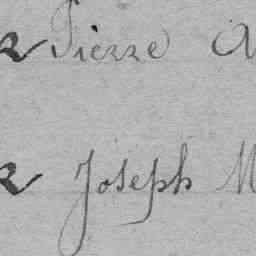 Pierre A
Joseph M